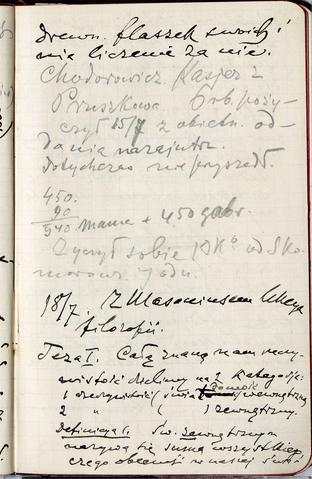 drewn. flaszek swoich i
nie liczenie za nie.
Chodorowicz. Kasjer z
Pruszkowa 6 rb. poży-
czył 15/7 z obietn. od-
dania nazajutrz.
Dotychczas nie przyszedł.
450.
90
540 mama + 450 gabr.
Życzył sobie od Sko-
morows.
18/7. Z Masoniusem lekcja
filozofii.
Teza I. Całą znaną nam rzeczy-
wistość dzielimy na 2 kategorje:
1 rzeczywistość (świadomość) wewnętrzną
2 " ( ) zewnętrzny.
Definicja I. Św. zewnętrznym
nazywa się suma wszystkiego
czego obecność w naszej